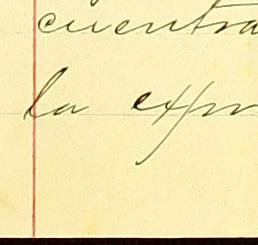 cuentra
la expr